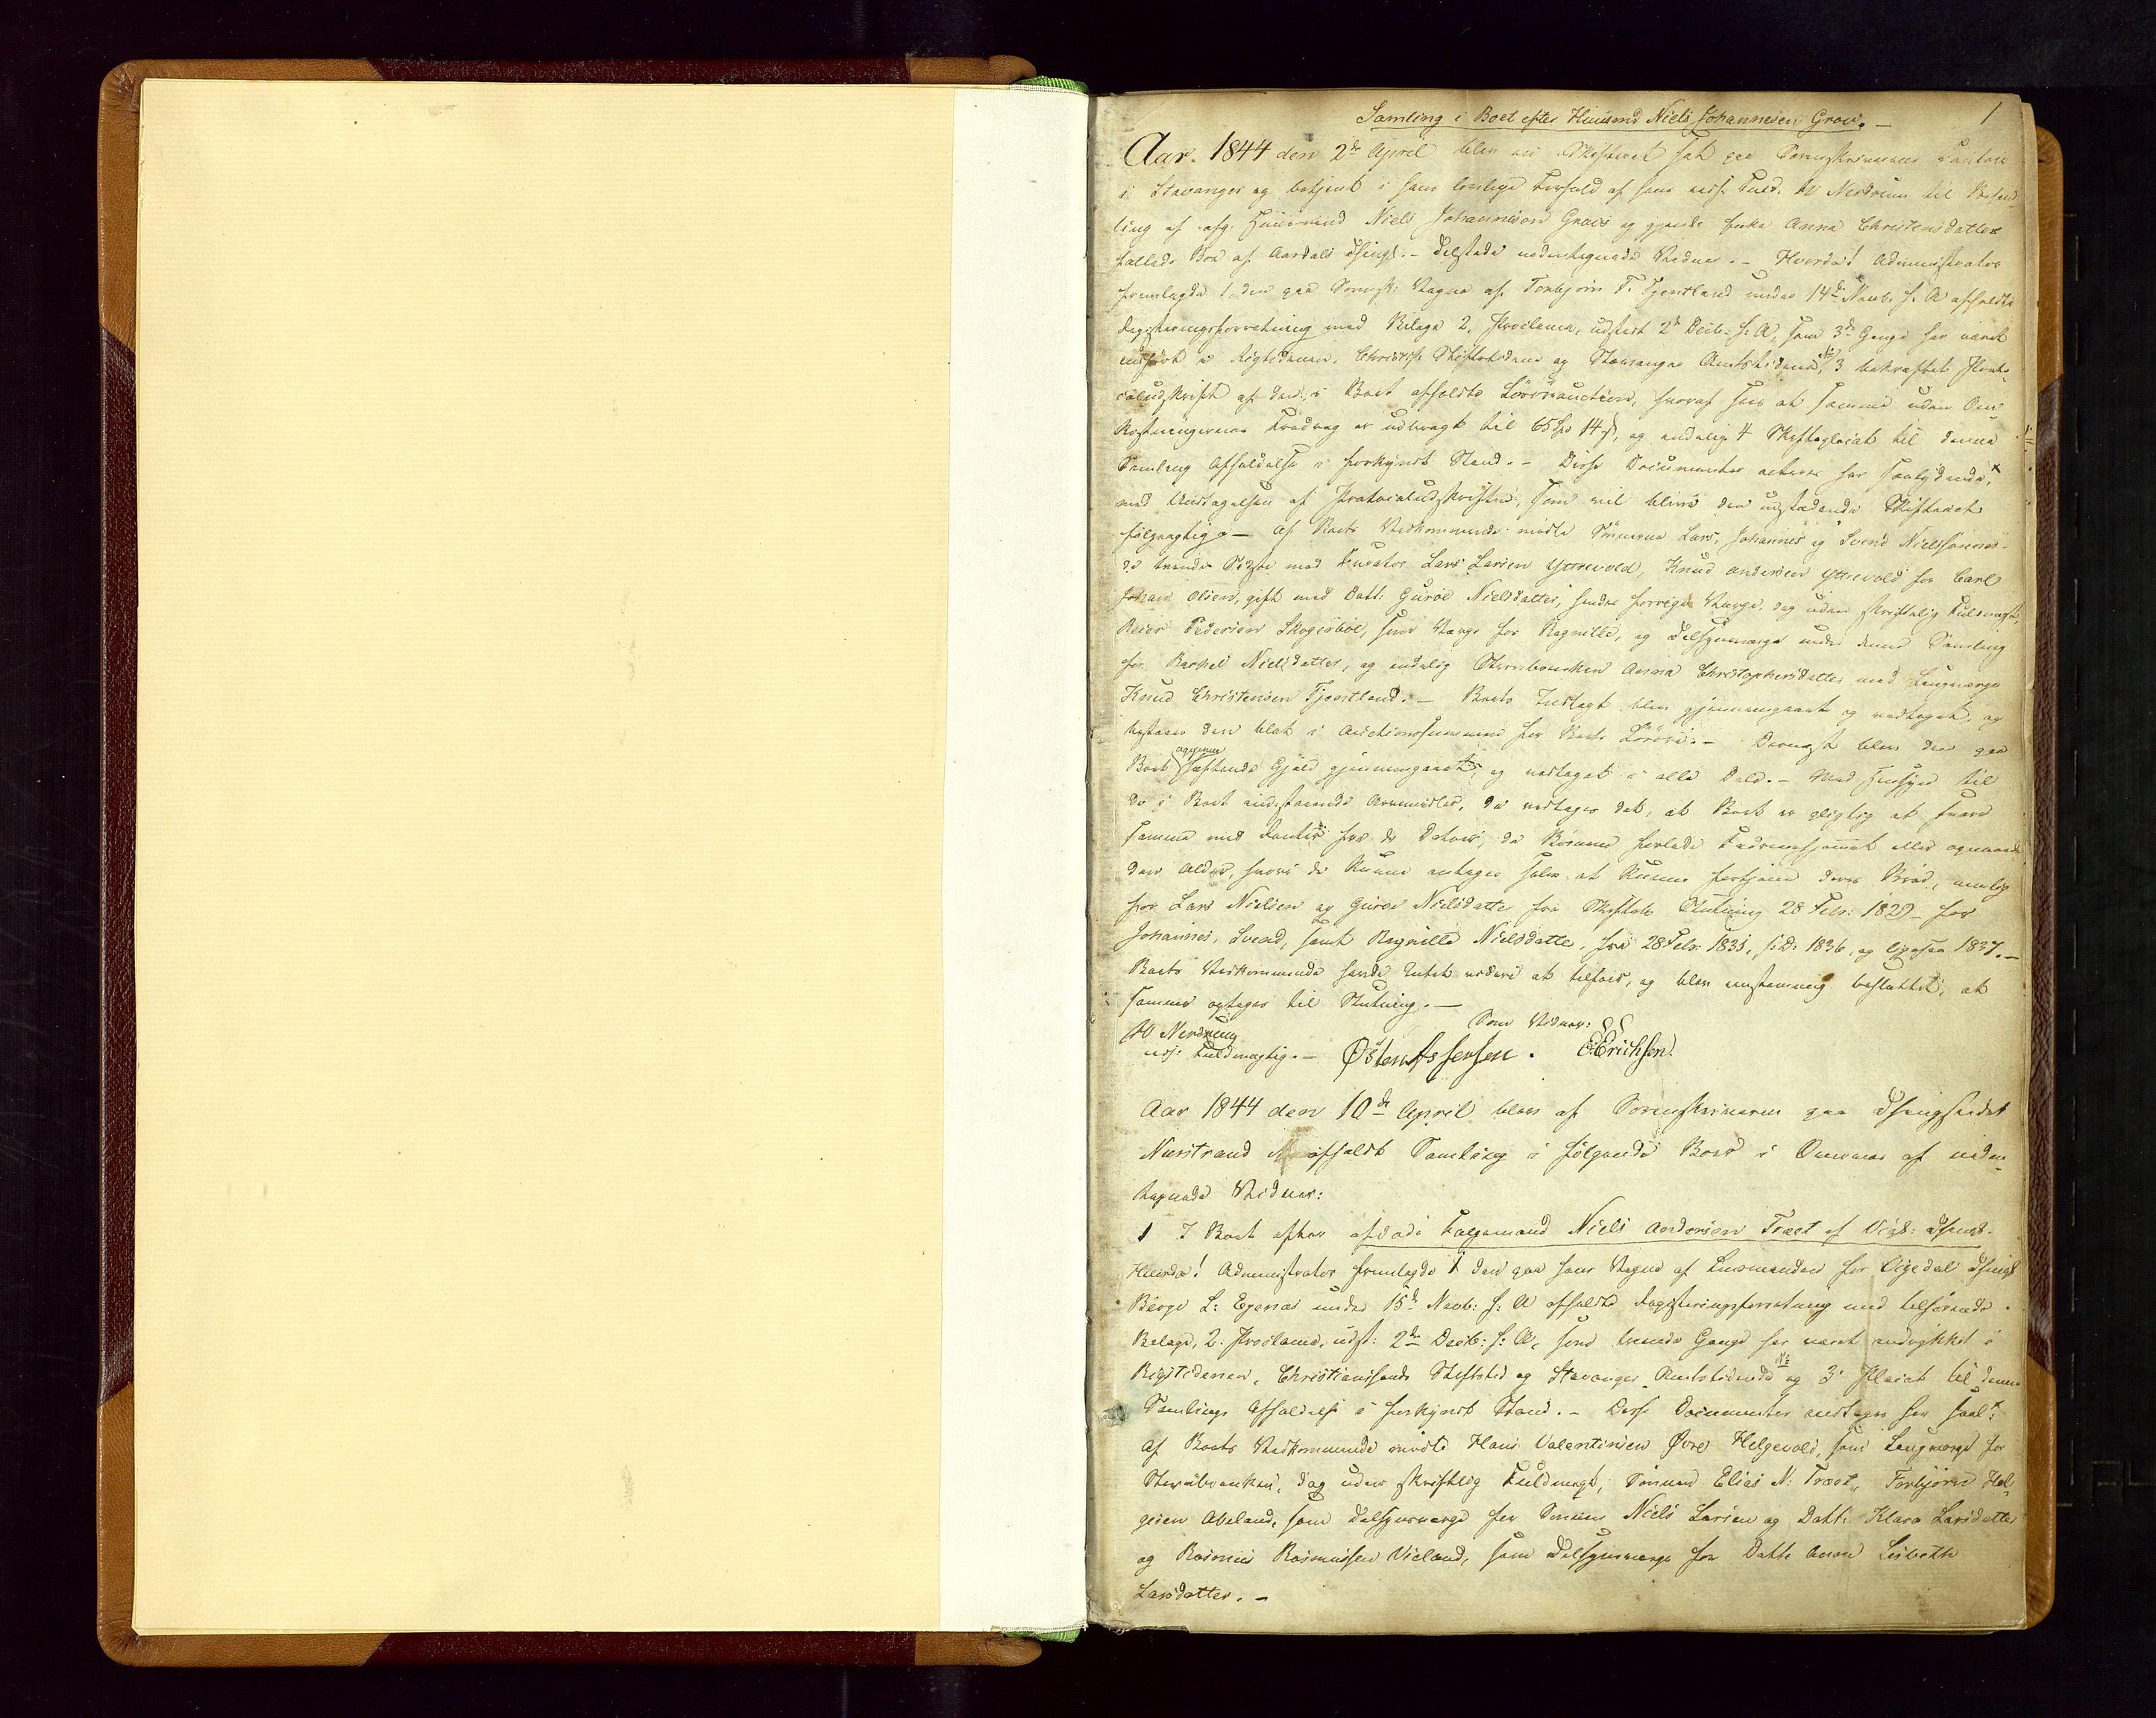 Samling i Boet efter Huusmd Niels Johannesen Grow. — 1
Aar. 1844 den 2de April blev en Skifteret sat paa Sorenskriverens Contoir
i Stavanger og betjent i hans lovlige Forfald af hans eedsf. Fuldm. W Nerdrum til Behand-
ling af afg. Huusmand Niels Johannesen Grows og gjenl. Enke Anna Christensdatter
fælleds Boe af Aardals Thingl. – Tilstede undertegnede Vidner. – Hvorda! Administrator
fremlagde 1, den paa Sorensk: Vegne af Torbjörn T. Tjentland under 14de Novb. f. A. afholdte
Registreringsforretning med Bilage 2, Proclama, udstedt 2de Decb: f: A, som 3de Gange har været
indført i Rigstidenen, Christsfs Stiftstidende og Stavanger Amtstidende, No 3 bekræftet Proto-
coludskrift af den i Boet afholdte Løsøreauction, hvoraf sees at samme uden Om-
kostningernes Fradrag er udbragt til 65 Spd 14 s, og endelig 4 Skifteplacat til denne
Samlings Afholdelse i forkyndt Stand. – Disse Documenter acteres her saalydende,
med Undtagelsen af Protocoludskriften, som vil blive den udstedende Skifteact
følgagtig. – Af Boets Vedkommende mødte Sønnerne Lars, Johannes og Svend Nielssønner
de tvende Sidste med Curator Lars Larsen Yttrevold, Knud Andersen Yttrevold for Carl
Johan Olsen, gift med Datt: Guroe Nielsdatter, hendes forrige Værge, dog uden skriftelig Fuldmagt,
Reier Pedersen Skogesböe, som Værge for Ragnille, og Tilsynsværge under denne Samling
for Rachel Nielsdatter, og endelig Stervboenken Anna Christophersdatter med Laugværge
Knud Christensen Tjentland. – Boets Indtægt blev gjennemgaaet og vedtaget, og
bestaaer den blot i Auctionssummen for Boets Løsøre. – Dernæst blev den paa
Boet opgivne hæftende Gjeld gjennemgaaet, og vedtaget i alle Dele. – Med Hensyn til
de i Boet indestaaende Arvemidler, da vedtages det, at Boet er pligtig at svare
samme med Renter fra de Datoer, da Børnene forlode Fædrenehjemmet eller opnaaede
den Alder, hvori de kunne antages selv at kunne fortjene deres Brød, nemlig
for Lars Nielsen og Guroe Nielsdatter fra Skiftets Slutning 28 Febr: 1829 – for
Johannes, Svend, samt Ragnille Nielsdatter, fra 28 Febr: 1831, s: D: 1836, og ligesaa 1837. –
Boets Vedkommende havde Intet videre at tilføie, og blev eenstemmig besluttet, at
samme optages til Slutning. –
W Nerdrum
eedsf: Fuldmægtig. –
Som Vidner:
Østen Assersen. E. Erichsen.
Aar 1844 den 10de April blev af Sorenskriveren paa Thingstedet
Nærstrand afholdt Samling i følgende Boer i Overvær af under-
tegnede Vidner:
1 I Boet efter afdøde Føgemand Niels Andersen Træet af Vigd: Thingl.
Hvorda! Administrator fremlagde 1 den paa hans Vegne af Lensmanden for Vigedals Thingl
Börge L: Egenæs under 15de Novb: f: A afholdte Registreringsforretning med tilhørende
Bilage, 2. Proclama, udst: 2de Decb: f: A, som tvende Gange har været indrykket i
Rigstidenen, Christianssands Stiftstid og Stavanger Amtstidende og No 3 Placat til denne
Samlings Afholdelse i forkyndt Stand. – Disse Documenter vedtages her saal:
Af Boets Vedkommende mødte Hans Valentinsen Øvre Helgevold, som Laugværge for
Stervboenken, dog uden skriftlig Fuldmagt, Sønnen Elias N: Træet, Torbjörn Hel-
gesen Abeland, som Tilsynsværge for Sønnen Niels Larsen og Datt: Klara Larsdatter
og Rasmus Rasmussen Vieland, som Tilsynsværge for Datt: Lisbeth
Larsdatter. –